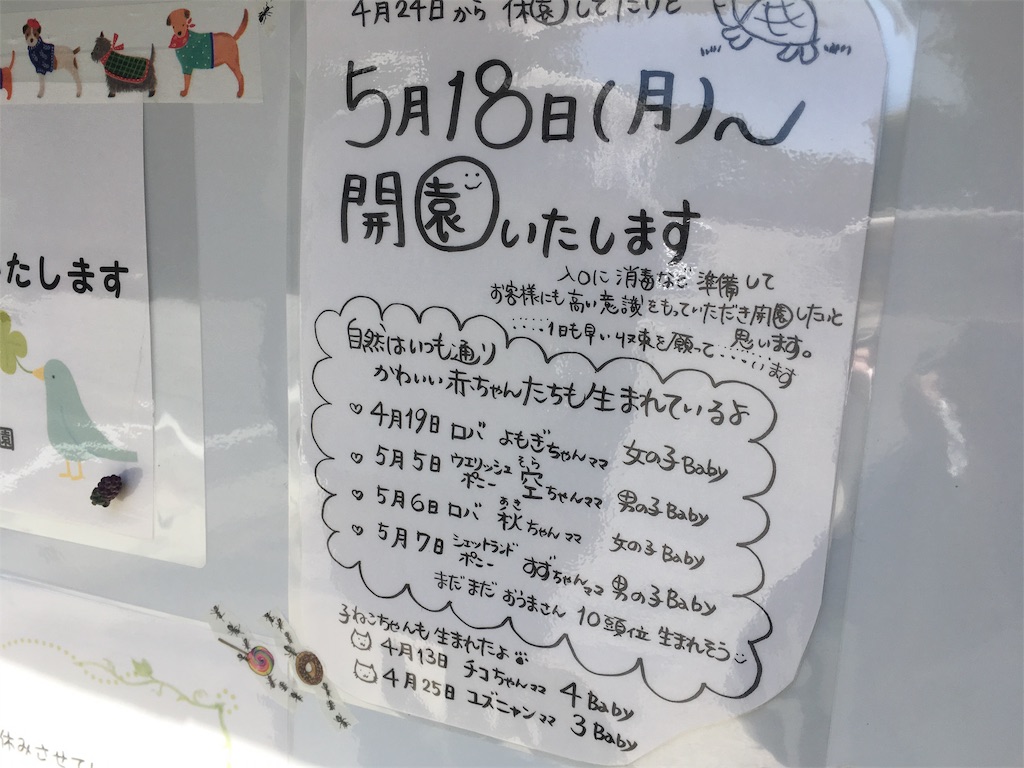 4月24日から 休園してたけど
5月18日(月)〜
開園いたします
入口に消毒など準備して
お客様にも高い意識をもっていただき開園したいと
思います。
‥‥‥1日も早い収束を願って‥‥‥います
自然はいつも通り
かわいい赤ちゃんたちも生まれているよ
♡ 4月19日 ロバ よもぎちゃんママ 女の子Baby
♡ 5月5日 ウエリッシュポニー 空ちゃんママ 男の子Baby
そら
♡ 5月6日 ロバ 秋ちゃんママ 女の子Baby
あき
♡ 5月7日 シェットランドポニー すずちゃんママ 男の子Baby
まだまだ おうまさん 10頭位 生まれそう
子ねこちゃんも生まれたよ
4月13日 チコちゃんママ 4Baby
4月25日 ユズニャンママ 3Baby
たします
園
休みさせて